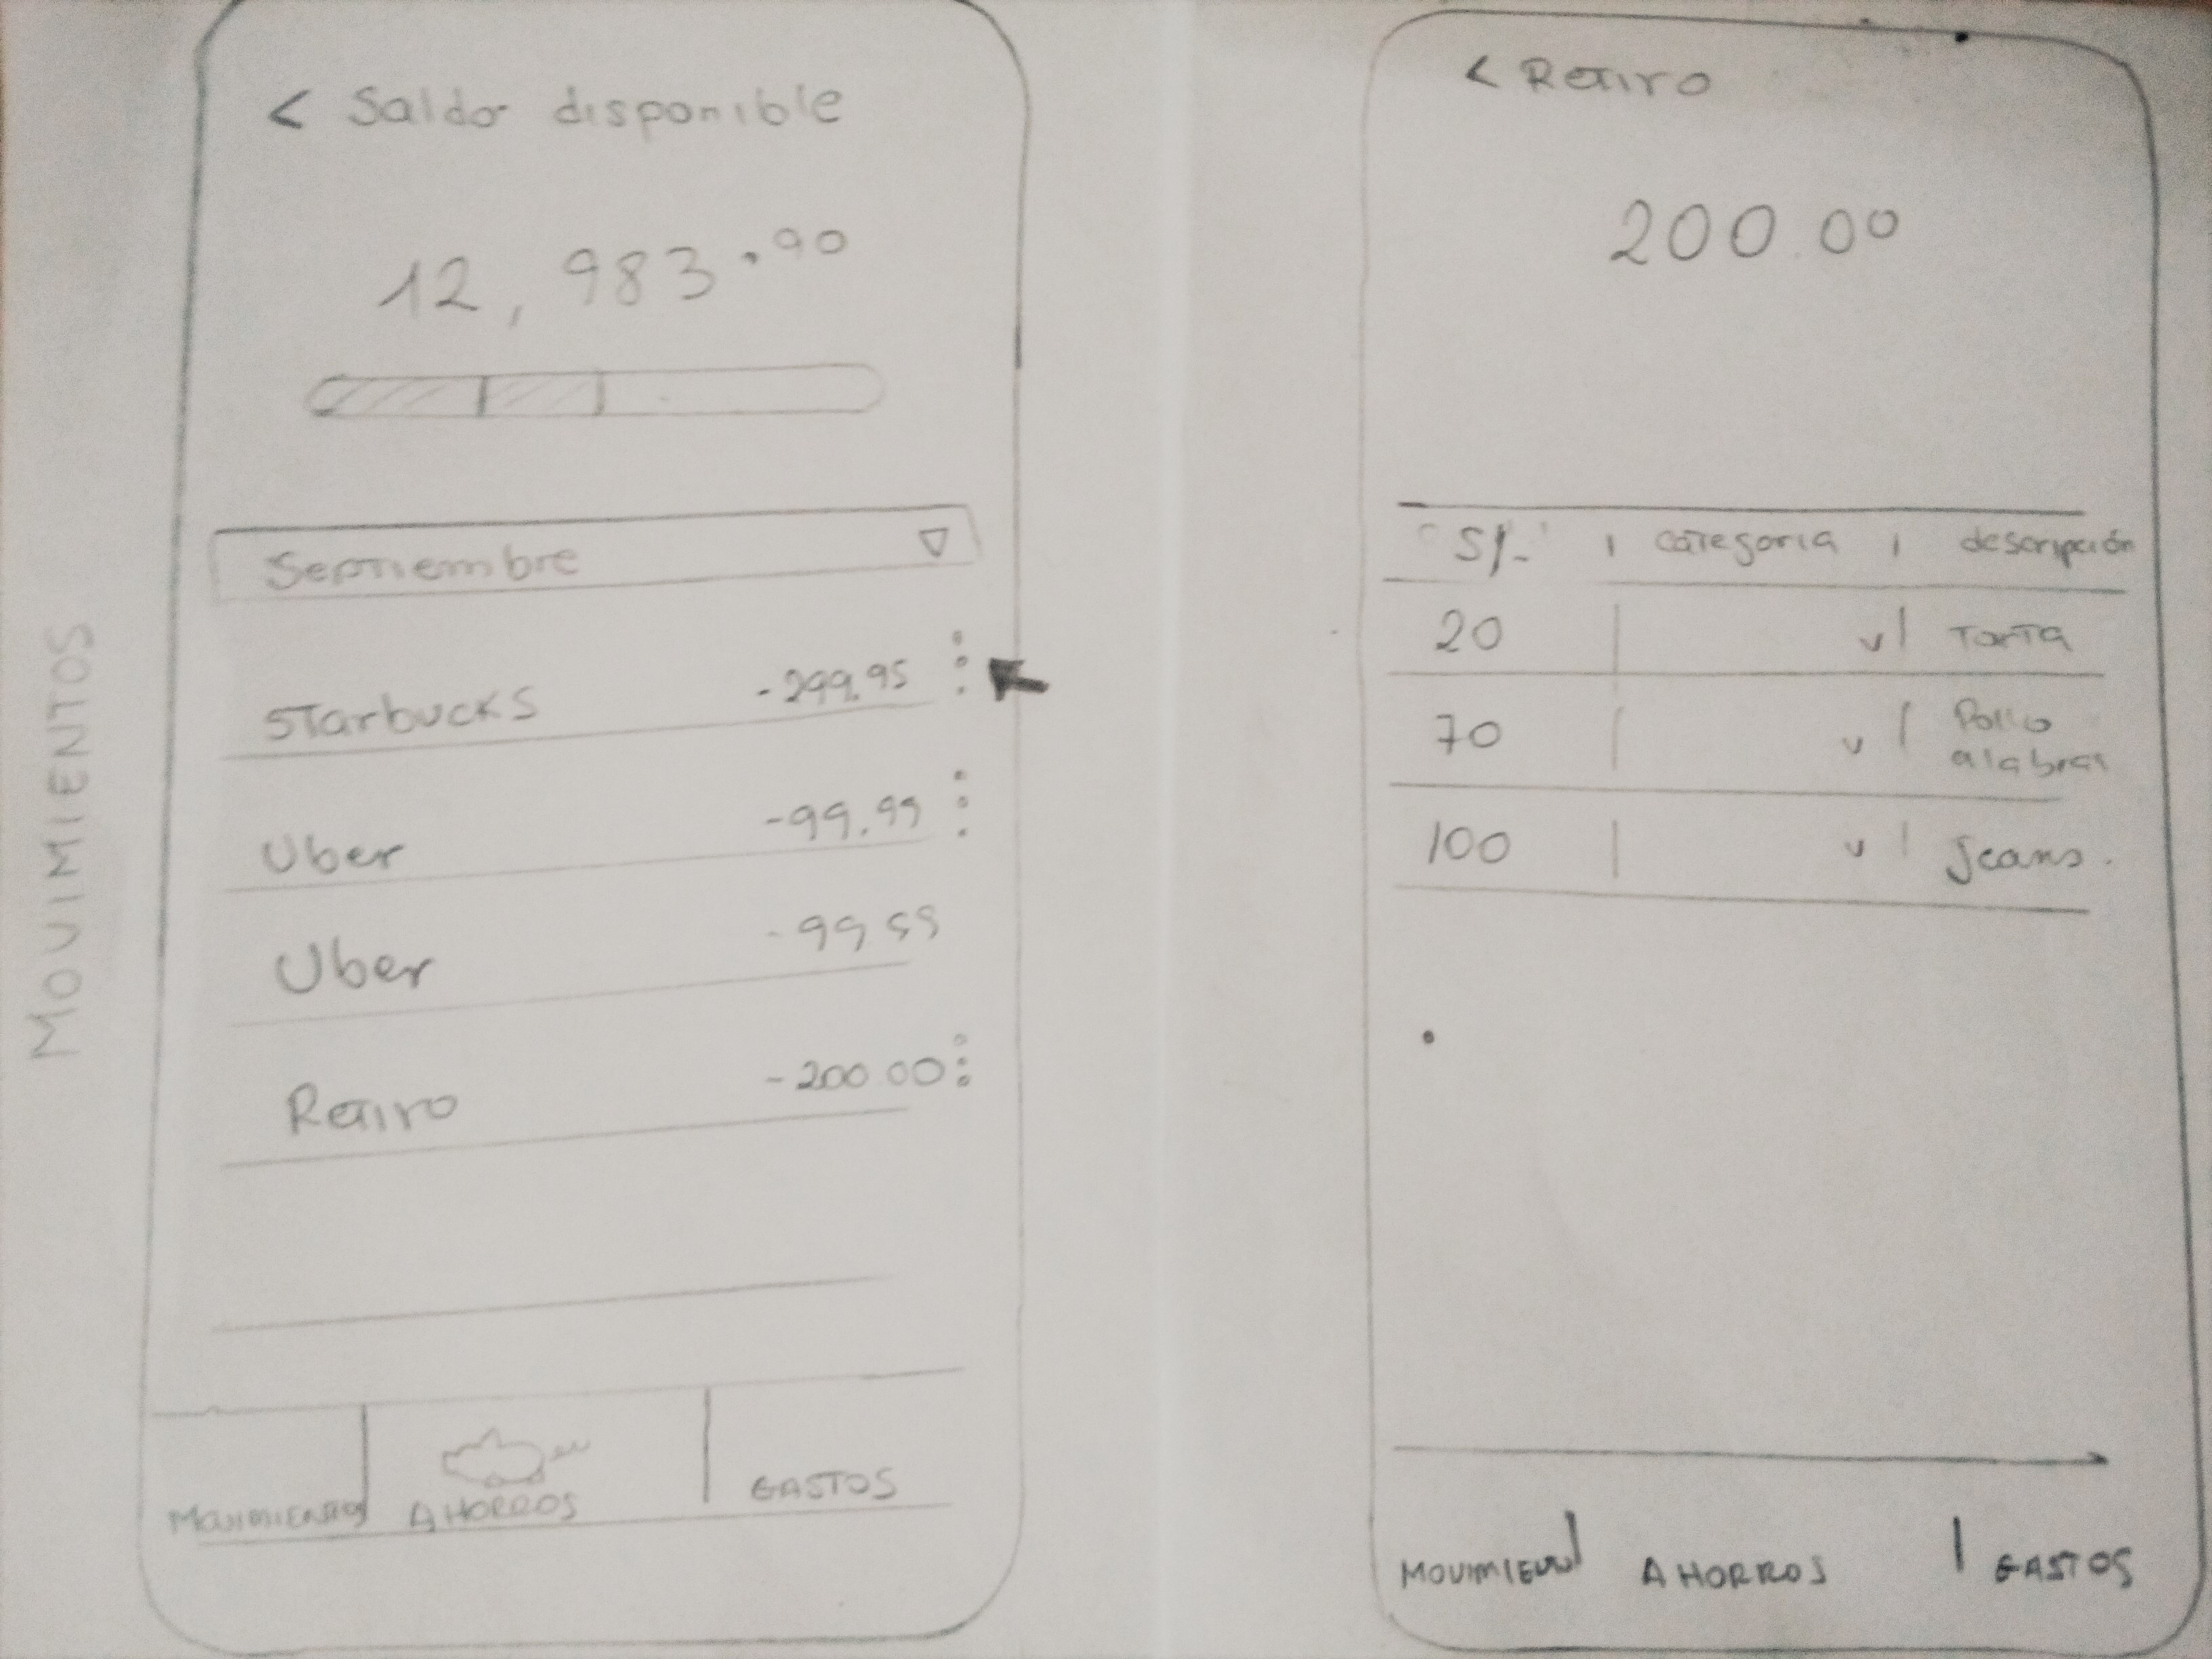 MOVIMIENTOS
< Saldo disponible
12,983.90
Septiembre
Starbucks -299.95
Uber -99.99
Uber -99 99
Retiro -200.00
MOVIMIENTOS AHORROS GASTOS
< Retiro
200.00
S/- | categoria | descripción
20 | v | Torta
70 | v | Pollo
alabras
100 | v | Jeans.
MOVIMIEN | AHORROS | GASTOS